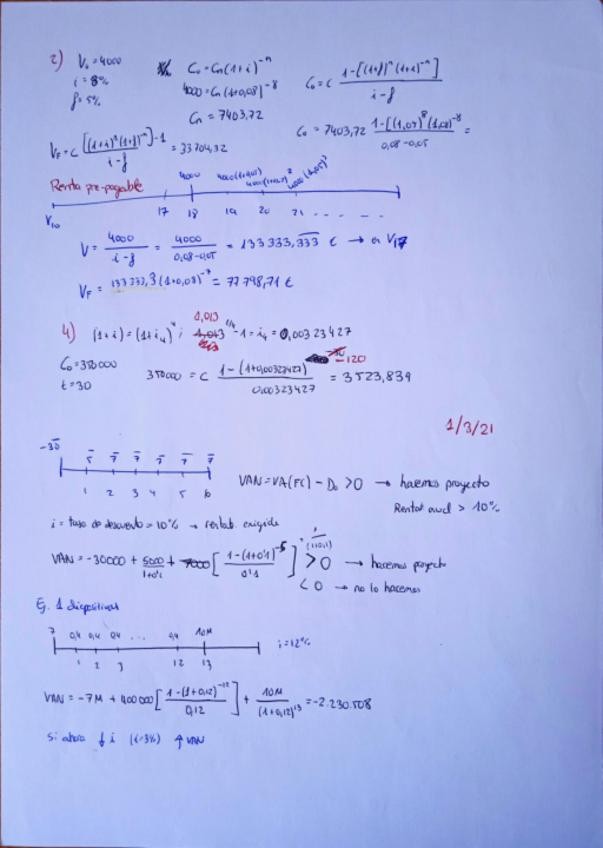 2) V₀ = 4000
i = 8%
f = 5%
C₀ = Cn(1+i)⁻ⁿ
4000 = Cn(1+0,08)⁻⁸
Cn = 7403,72
C₀ = C (1-[(1+f)ⁿ(1+i)⁻ⁿ])/(i-f)
C₀ = 7403,72 (1-[(1,05)⁸(1,08)⁻⁸])/(0,08-0,05) =
V_F = C [(1+i)ⁿ(1+f)⁻ⁿ]-1/(i-f) = 33704,32
Renta pre-pagable
4000 4000(1+0,05) 4000(1+0,05)² 4000(1,05)³
V₁₀ 17 18 19 20 21 . . . .
V = 4000/(i-f) = 4000/(0,08-0,05) = 133 333,333 € → en V17
V_F = 133 333,3(1+0,08)⁻⁷ = 77 798,71 €
1,013
4) (1+i) = (1+i₄)⁴ ; 1,013^(1/4) -1 = i₄ = 0,00323427
C₀ = 350000
t = 30
350000 = C (1-(1+0,00323427)⁻¹²⁰)/0,00323427 = 3523,839
1/3/21
-30 5 7 7 7 7 7
1 2 3 4 5 6
VAN = VA(FC) - D₀ > 0 → hacemos proyecto
Rentab anual > 10%
i = tasa de descuento = 10% → rentab. exigida
VAN = -30000 + 5000/(1+0'1) + 7000 [(1-(1+0'1)⁻⁵)/0'1] · 1/(1+0,1) > 0 → hacemos proyecto
< 0 → no lo hacemos
Ej. 1 diapositivas
7 0,4 0,4 0,4 ... 0,4 10M
1 2 3 12 13
i = 12%
VAN = -7M + 400 000 [(1-(1+0,12)⁻¹²)/0,12] + 10M/(1+0,12)¹³ = -2.230.508
Si ahora ↓ i (i=3%) ↑ VAN